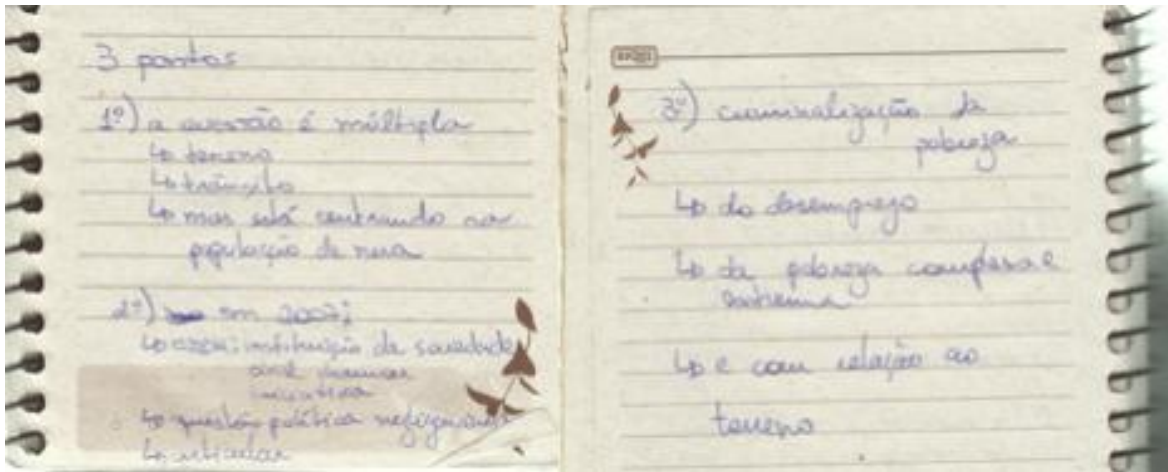 3 pontos
1º) a questão é múltipla
↳ terreno
↳ trânsito
↳ mas está centrando na
população de rua
2º) em 2007:
↳ instituição da sociedade
civil
↳ questão política negligenciada
↳ articular
3º) criminalização da
pobreza
↳ do desemprego
↳ da pobreza complexa e
extrema
↳ e com relação ao
terreno